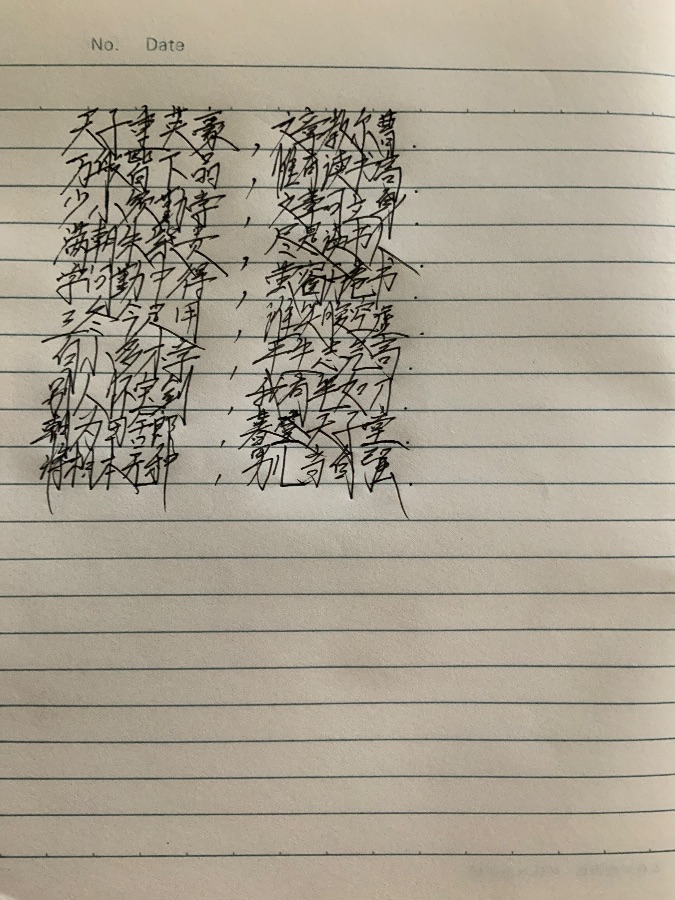 No. Date
天子重英豪，文章教尔曹.
万般皆下品，惟有读书高.
少小须勤学，文章可立身.
满朝朱紫贵，尽是读书人.
学问勤中得，萤窗万卷书.
三冬今足用，谁笑腹空虚.
自小多才学，平生志气高.
别人怀宝剑，我有笔如刀.
朝为田舍郎，暮登天子堂.
将相本无种，男儿当自强.